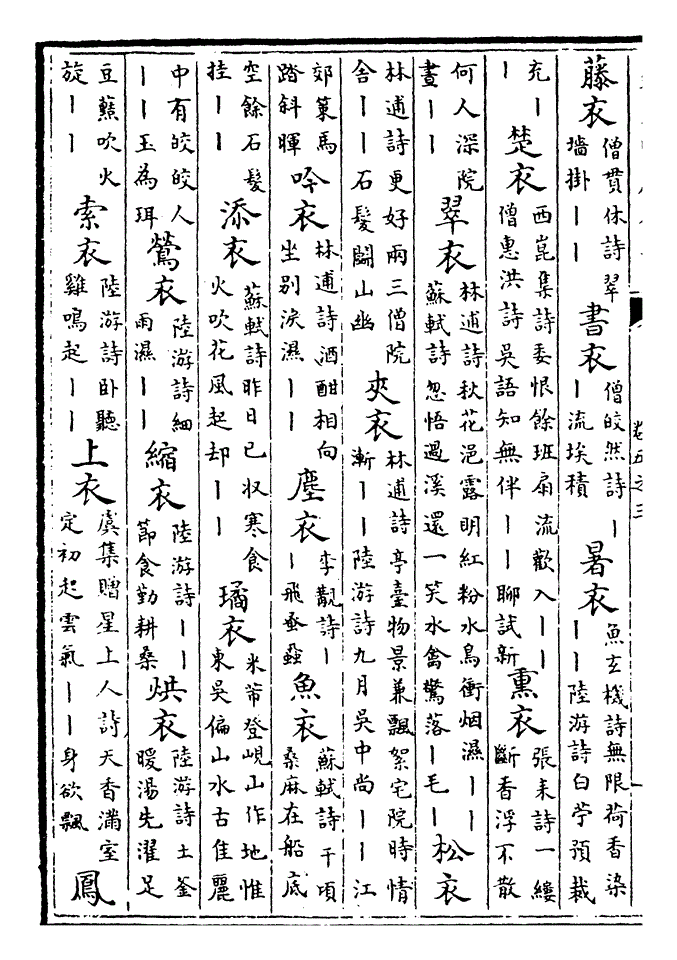 藤衣僧貫休詩翠墻掛丨丨書衣僧皎然詩丨丨流埃積暑衣魚玄機詩無限荷香染丨丨陸游詩白苧預裁
充丨丨楚衣西崑集詩委恨餘班扇流歡入丨丨僧惠洪詩吳語知無伴丨丨聊試新熏衣張耒詩一縷斷香浮不散
何人深院晝丨丨翠衣林逋詩秋花浥露明紅粉水鳥衝烟濕丨丨蘇軾詩忽悟過溪還一笑水禽驚落丨毛丨松衣
林逋詩更好兩三僧院舍丨丨石髮闘山幽夾衣林逋詩亭臺物景兼飄絮宅院時情漸丨丨陸游詩九月吳中尚丨丨江
郊䇿馬踏斜暉吟衣林逋詩酒酣相向坐别淚濕丨丨塵衣李觀詩丨丨飛蚤蝨魚衣蘇軾詩千頃桑麻在船底
空餘石髮挂丨丨添衣蘇軾詩昨日已收寒食火吹花風起却丨丨璚衣米芾登峴山作地惟東吳偏山水古佳麗
中有皎皎人丨丨玉為珥鶯衣陸游詩細雨濕丨丨縮衣陸游詩丨丨節食勤耕桑烘衣陸游詩土釜暖湯先濯足
豆䕸吹火旋丨丨索衣陸游詩卧聽雞鳴起丨丨上衣虞集贈星上人詩天香滿室定初起雲氣丨丨身欲飄鳳